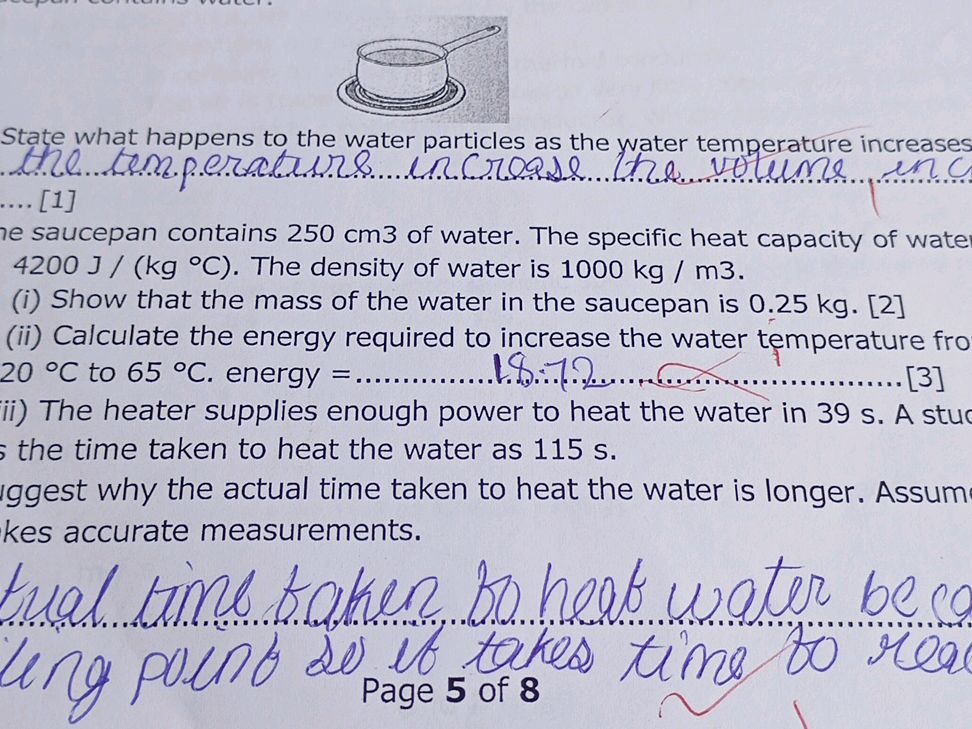 contains water.
State what happens to the water particles as the water temperature increases
the temperature increase the volume inc
....[1]
he saucepan contains 250 cm3 of water. The specific heat capacity of water
4200 J / (kg °C). The density of water is 1000 kg / m3.
(i) Show that the mass of the water in the saucepan is 0.25 kg. [2]
(ii) Calculate the energy required to increase the water temperature fro
20 °C to 65 °C. energy =.......18.72.......[3]
ii) The heater supplies enough power to heat the water in 39 s. A stud
s the time taken to heat the water as 115 s.
uggest why the actual time taken to heat the water is longer. Assume
kes accurate measurements.
tual time taken to heat water beca
iling point so it takes time to reac
Page 5 of 8